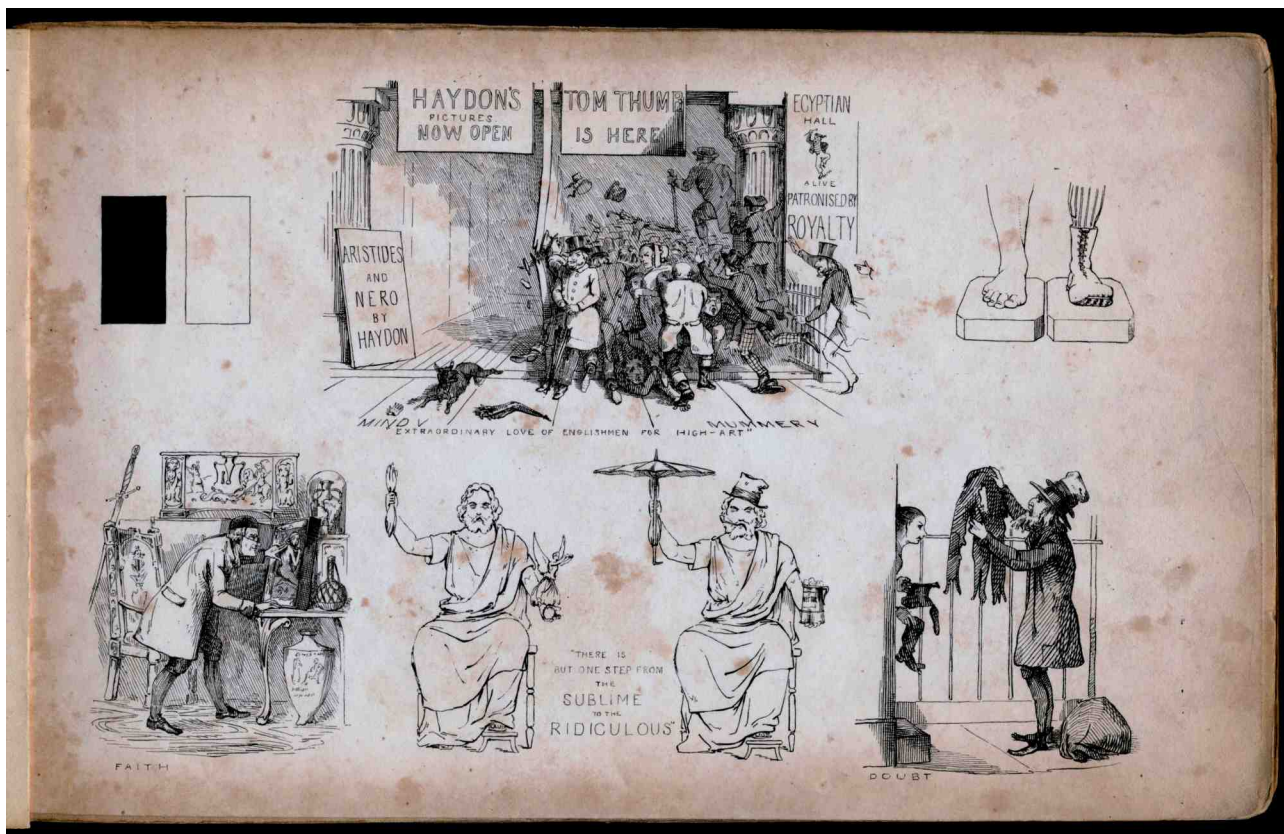 HAYDON'S
PICTURES
NOW OPEN
TOM THUMB
IS HERE
EGYPTIAN
HALL
ALIVE
PATRONISED BY
ROYALTY
ARISTIDES
AND
NERO
BY
HAYDON
MIND V MUMMERY
EXTRAORDINARY LOVE OF ENGLISHMEN FOR HIGH-ART"
"THERE IS
BUT ONE STEP FROM
THE
SUBLIME
TO THE
RIDICULOUS"
FAITH
DOUBT